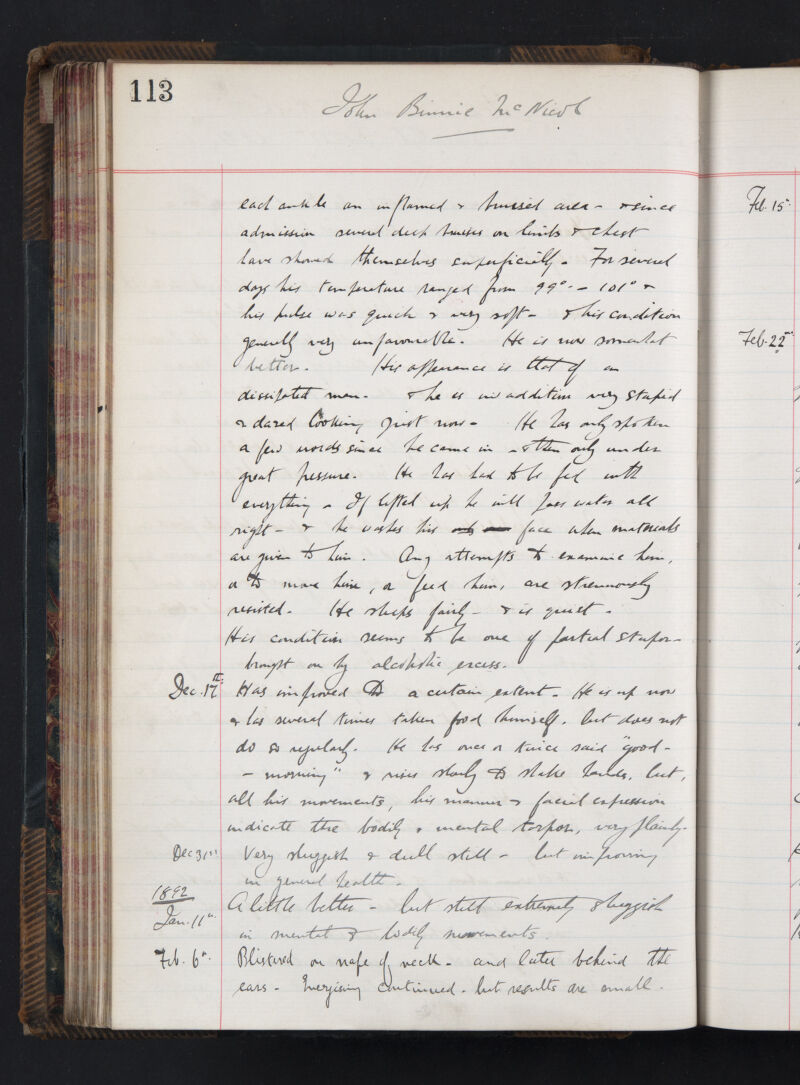 113
John Binnie McNicol
each ankle an inflamed & bruised area - & since
admission several deep bruises on limbs & chest
have showed themselves superficially - For several
days his temperature ranged from 99° - 101° &
his pulse was quick & very soft - & his condition
generally very unfavourable. He is now somewhat
better. His appearance is that of an
dissipated man. & he is in addition very stupid
& dazed looking just now - He has only spoken
a few words since he came in - & then only under
great pressure. He has had to be fed with
everything - If lifted up he will pass water all
right - & he washes his face when materials
are given to him. Any attempts to examine him,
or to move him, or feed him, are strenuously
resisted. He sleeps fairly - & is quiet -
His condition seems to be one of partial stupor -
brought on by alcoholic excess.
Dec. 17th Has improved to a certain extent. He is up now
& has several times taken food himself, but does not
do so regularly. He has once or twice said "good-
- morning" & rises slowly to shake hands, but,
all his movements, his manner & facial expression
indicate the bodily & mental torpor, very plainly.
Dec 31st Very sluggish & dull still - but improving
in general health -
1892
Jan. 11th A little better - but still extremely sluggish
in mental & bodily movements.
Feb. 6th Blistered on nape of neck - and later behind the
ears - Energising continued - but results are small.
Feb. 15th
Feb. 22nd